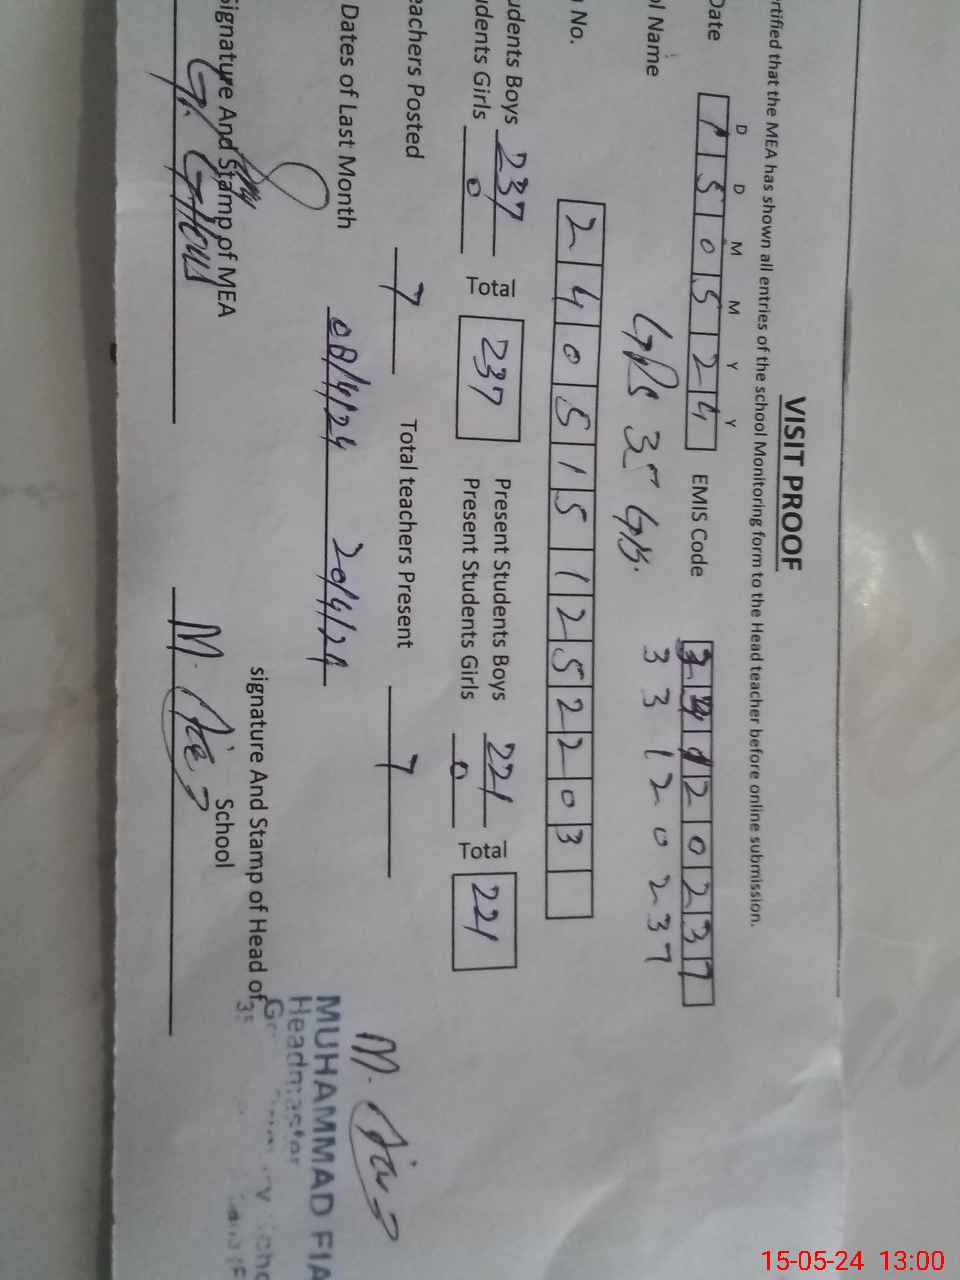 VISIT PROOF
rtified that the MEA has shown all entries of the school Monitoring form to the Head teacher before online submission.
D D M M Y Y
Date 150524 EMIS Code 20237
ol Name GPS 35 GB. 33120237
No. 2405151252203
udents Boys 237 Total 237 Present Students Boys 221 Total 221
udents Girls 0 Present Students Girls 0
eachers Posted 7 Total teachers Present 7
Dates of Last Month 08/4/24 20/4/24
Signature And Stamp of MEA
signature And Stamp of Head of
School
G. Ghous
M.
M.
MUHAMMAD FIA
Headmaster
35
15-05-24 13:00